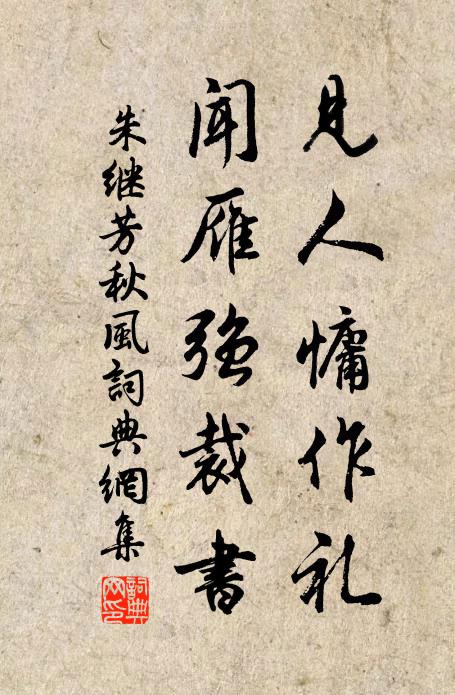 見人慵作礼
聞雁強裁書
朱继芳秋風詞典網集
詞典
网印